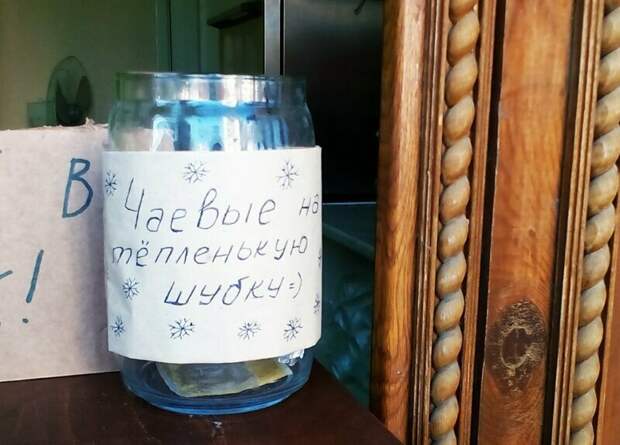 В
!
Чаевые на
тёпленькую
шубку=)